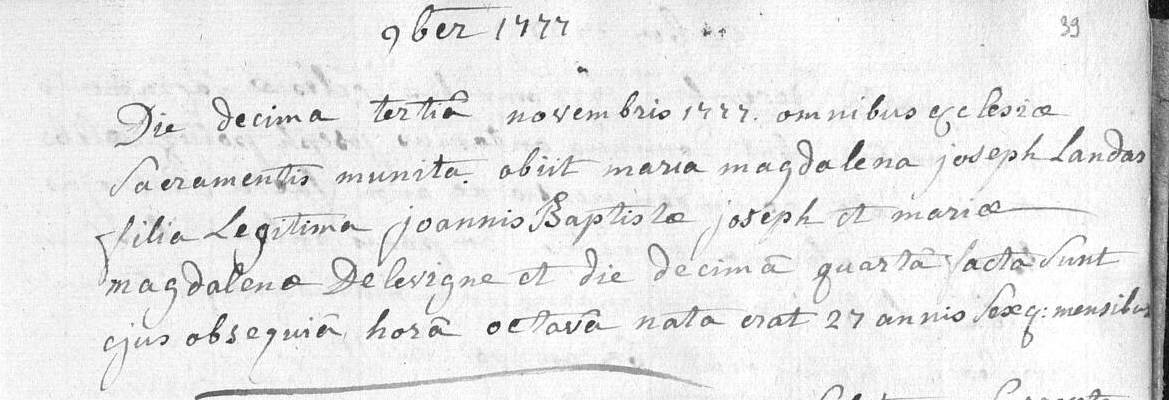 9ber 1777
39
Die decima tertiâ novembris 1777. omnibus ecclesiæ
Sacramentis munita. obiit maria magdalena joseph Landas
filia Legitima joannis Baptistæ joseph et mariæ
magdalenæ Delevigne et die decimâ quartâ facta sunt
ejus obsequiâ horâ octavâ nata erat 27 annis sexq: mensibus